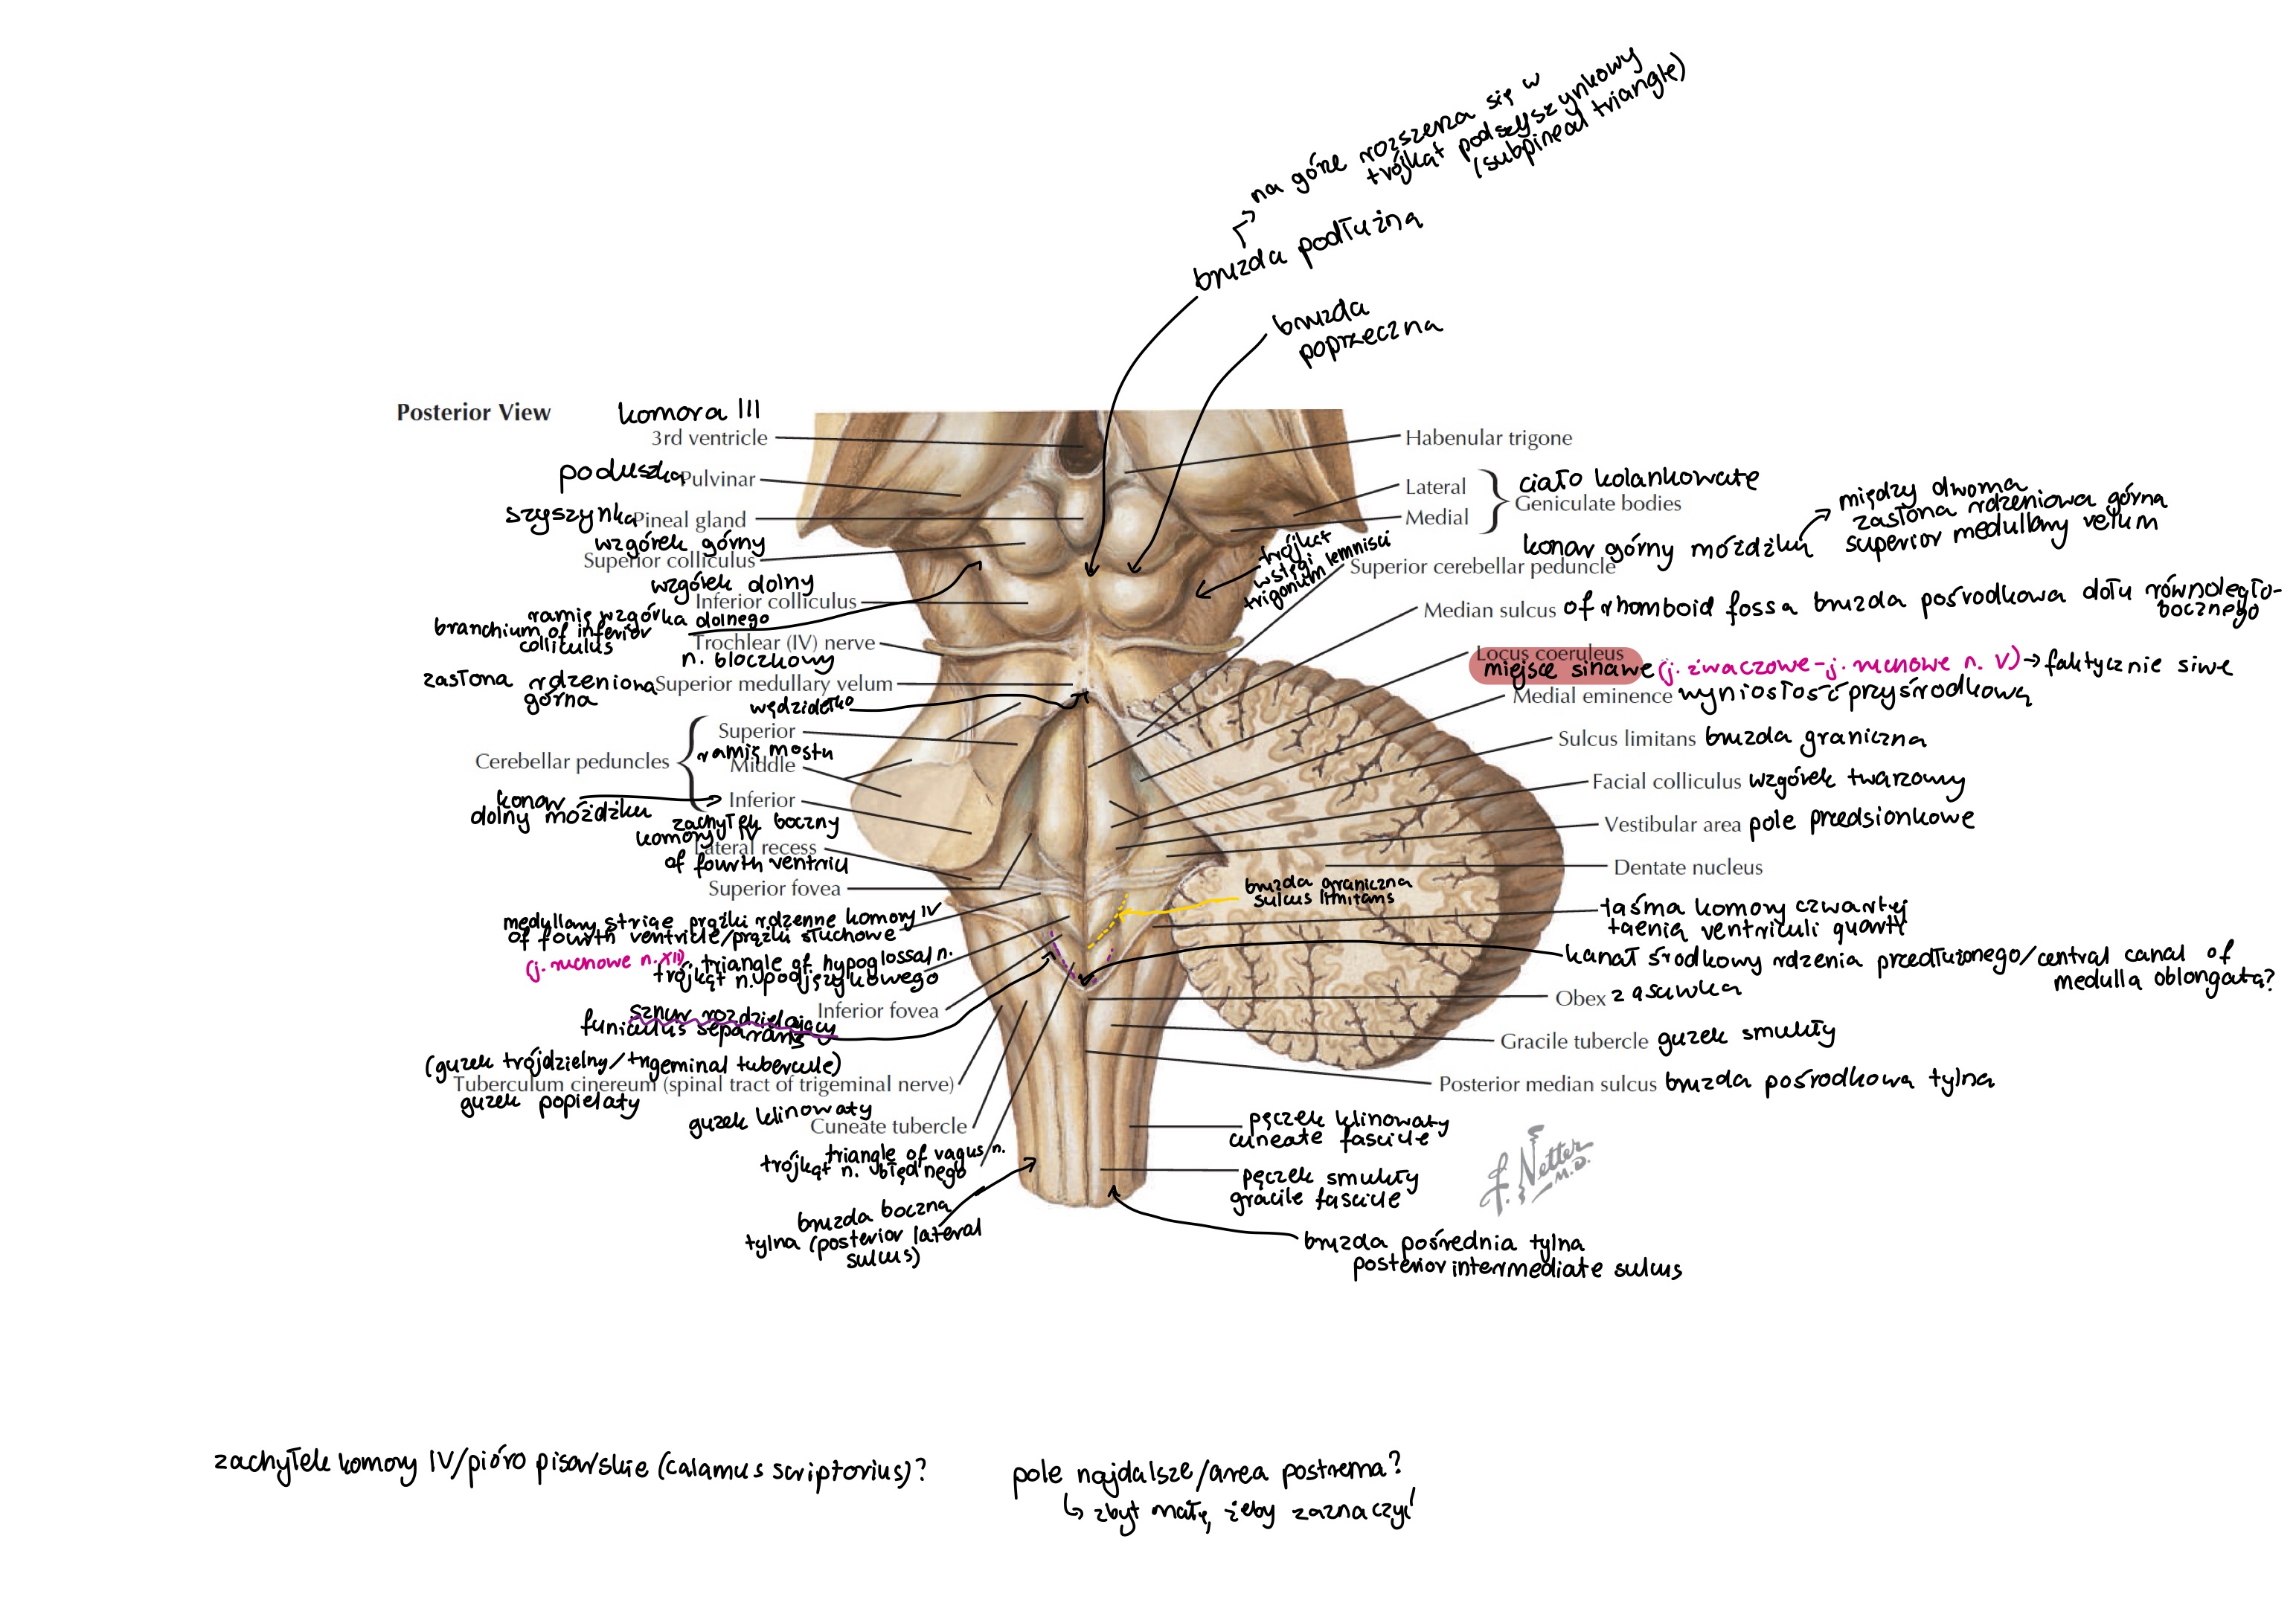 na górze rozszerza się w
trójkąt podszyszynkowy
(subpineal triangle)
bruzda podłużna
bruzda
poprzeczna
Posterior View
komora III
3rd ventricle
poduszka
Pulvinar
szyszynka
Pineal gland
wzgórek górny
Superior colliculus
wzgórek dolny
Inferior colliculus
ramię wzgórka dolnego
branchium of inferior
colliculus
Trochlear (IV) nerve
n. bloczkowy
zasłona rdzeniona
górna
Superior medullary velum
wędzidełko
Cerebellar peduncles
Superior
ramię mostu
Middle
Inferior
konar
dolny móżdżku
zachyłek boczny
komory IV
Lateral recess
of fourth ventricl
Superior fovea
medullary striae prążki rdzenne komory IV
of fourth ventricle/prążki słuchowe
(j. ruchowe n. XII)
triangle of hypoglossal n.
trójkąt n. podjęzykowego
Inferior fovea
sznur rozdzielający
funiculus separans
(guzek trójdzielny/trigeminal tubercule)
Tuberculum cinereum (spinal tract of trigeminal nerve)
guzek popielaty
guzek klinowaty
Cuneate tubercle
triangle of vagus n.
trójkąt n. błędnego
bruzda boczna
tylna (posterior lateral
sulcus)
Habenular trigone
Lateral
Medial
ciało kolankowate
Geniculate bodies
między dwoma
zasłona rdzeniowa górna
superior medullary velum
konar górny móżdżku
Superior cerebellar peduncle
trójkąt
wstęgi
trigonum lemnisci
Median sulcus of rhomboid fossa bruzda pośrodkowa dołu równoległo-
bocznego
Locus coeruleus
miejsce sinawe (j. żwaczowe - j. ruchowe n. V) → faktycznie siwe
Medial eminence wyniosłość przyśrodkowa
Sulcus limitans bruzda graniczna
Facial colliculus wzgórek twarzowy
Vestibular area pole przedsionkowe
Dentate nucleus
bruzda graniczna
sulcus limitans
taśma komory czwartej
taenia ventriculi quarti
kanał środkowy rdzenia przedłużonego/central canal of
medulla oblongata?
Obex zasuwka
Gracile tubercle guzek smukły
Posterior median sulcus bruzda pośrodkowa tylna
pęczek klinowaty
cuneate fascicle
pęczek smukły
gracile fascicle
F. Netter
M.D.
bruzda pośrednia tylna
posterior intermediate sulcus
zachyłek komory IV/pióro pisarskie (calamus scriptorius)?
pole najdalsze/area postrema?
↳ zbyt małe, żeby zaznaczyć